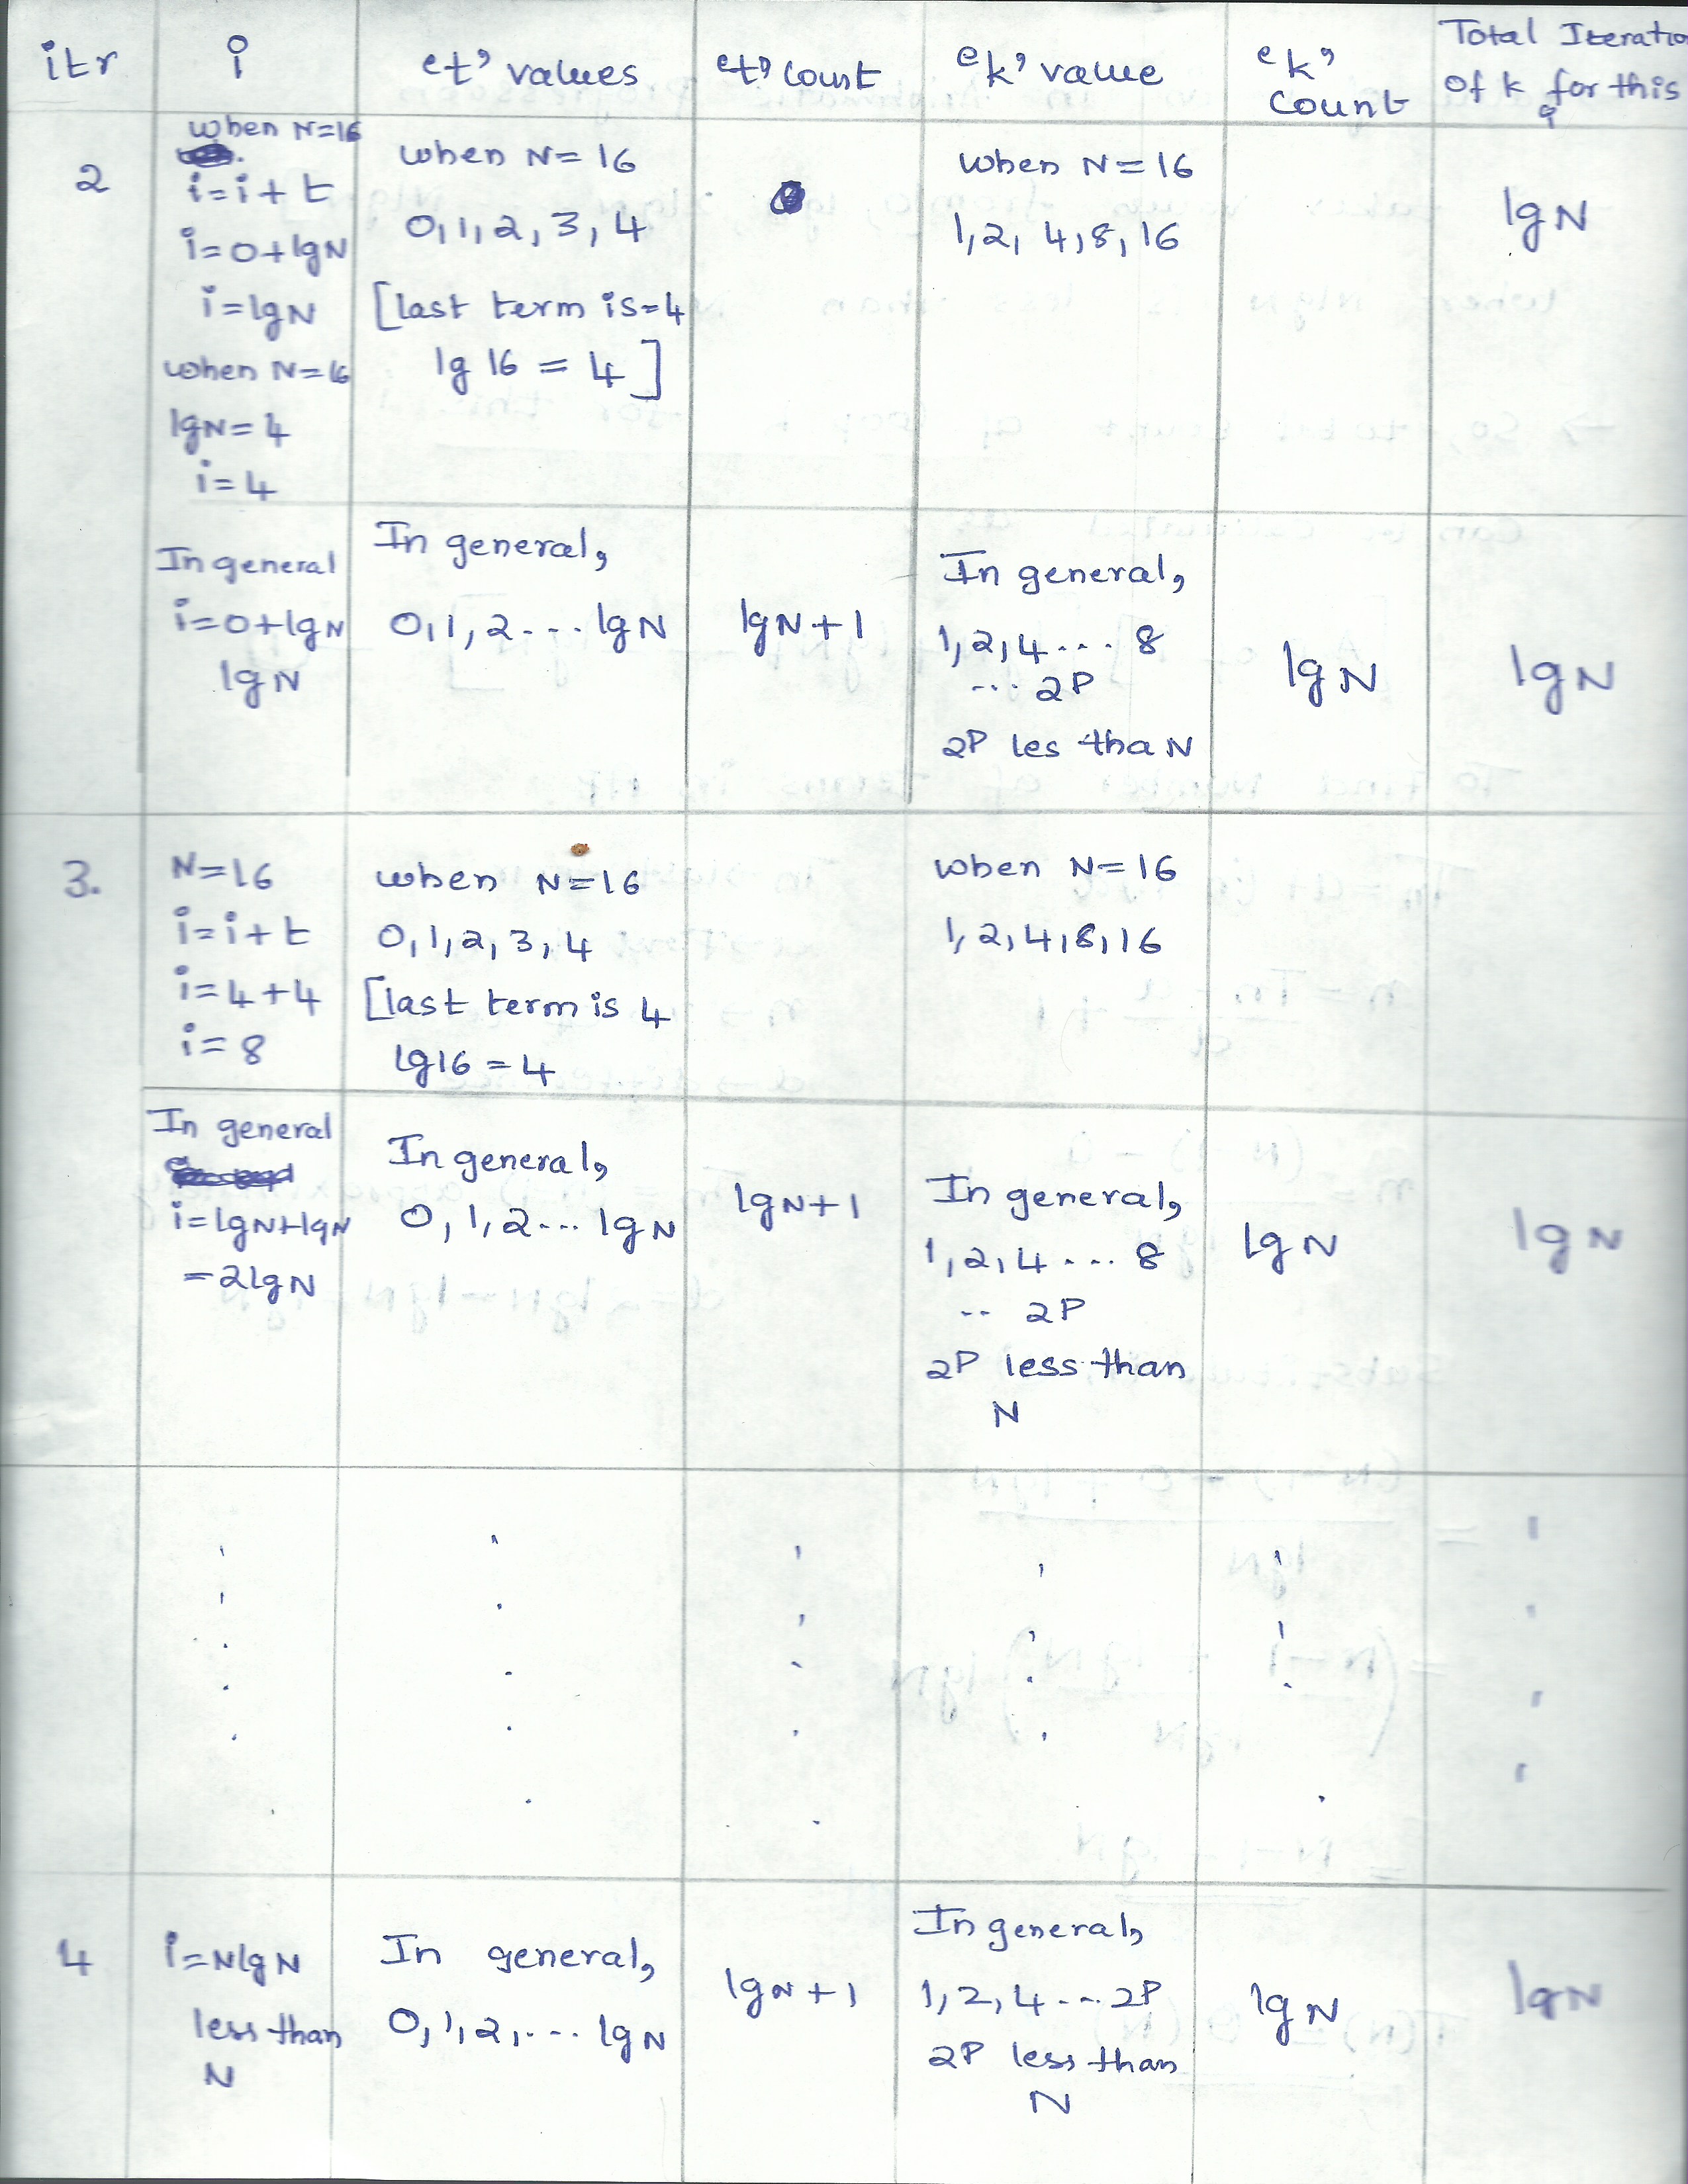 itr
i
et' values
et' count
ek' value
ek' count
Total Iteratio
of k for this
i
2
when N=16
i=i+t
i=0+lgN
i=lgN
when N=16
lgN=4
i=4
when N=16
0,1,2,3,4
[last term is=4
lg 16 = 4]
when N=16
1,2,4,8,16
lgN
In general
i=0+lgN
lgN
In general,
0,1,2... lgN
lgN+1
In general,
1,2,4.... 8
... 2P
2P les tha N
lgN
lgN
3.
N=16
i=i+t
i=4+4
i=8
when N=16
0,1,2,3,4
[last term is 4
lg16=4
when N=16
1,2,4,8,16
In general
i=lgN+lgN
=2lgN
In general,
0,1,2... lgN
lgN+1
In general,
1,2,4.... 8
.. 2P
2P less than
N
lgN
lgN
4
i=NlgN
less than
N
In general,
0,1,2,... lgN
lgN+1
In general,
1,2,4...2P
2P less than
N
lgN
lgN